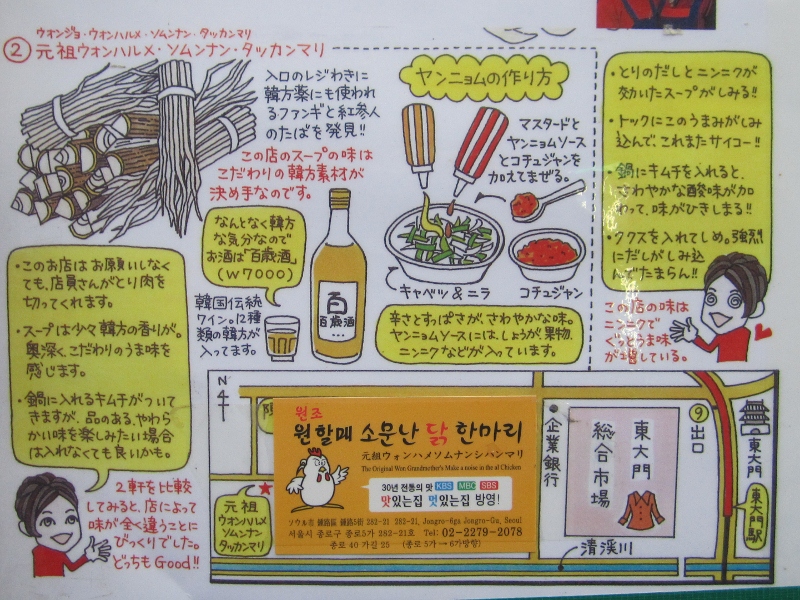 ウォンジョ・ウォンハルメ・ソムンナン・タッカンマリ
② 元祖ウォンハルメ・ソムンナン・タッカンマリ
入口のレジわきに
韓方薬にも使われ
るファンギと紅参人
のたばを発見!!
この店のスープの味は
こだわりの韓方素材が
決め手なのです。
なんとなく韓方
な気分なので
お酒は「百歳酒」
(W7000)
韓国伝統
ワイン。12種
類の韓方が
入ってます。
百
百歳酒
ヤンニョムの作り方
マスタードと
ヤンニョムソース
とコチュジャンを
加えてまぜる。
キャベツ & ニラ
コチュジャン
辛さとすっぱさが、さわやかな味。
ヤンニョムソースには、しょうが、果物、
ニンニクなどが入っています。
・とりのだしとニンニクが
効いたスープがしみる!!
・トックにこのうまみがしみ
込んで、これまたサイコー!!
・鍋にキムチを入れると、
さわやかな酸味が加
わって、味がひきしまる!!
・ククスを入れてしめ。強烈
にだしがしみ込
んでたまらん!!
この店の味は
ニンニクで
ぐっとうま味
が増している。
・このお店はお願いしなく
ても、店員さんがとり肉を
切ってくれます。
・スープは少々韓方の香りが。
奥深く、こだわりのうま味を
感じます。
・鍋に入れるキムチがついて
きますが、品のある、やわら
かい味を楽しみたい場合
は入れなくても良いかも。
2軒を比較
してみると、店によって
味が全く違うことに
びっくりでした。
どっちもGood!!
N
4
元祖
ウォンハルメ
ソムンナン
タッカンマリ
원조
원할매 소문난 닭 한마리
元祖ウォンハメソムナンシハンマリ
The Original Won Grandmother's Make a noise in the al Chicken
30년 전통의 맛 KBS MBC SBS
맛있는집 멋있는집 방영!
ソウル市 鍾路區 鍾路5街 282-21 282-21, Jongro-6ga Jongro-Gu, Seoul
서울시 종로구 종로5가 282-21호 Tel: 02-2279-2078
종로 40 가길 25 (종로 5가 → 6가방향)
企業銀行
東大門
総合市場
⑨出口
東大門
東大門駅
清渓川